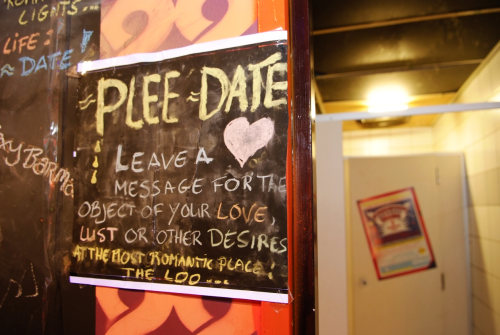 LIGHTS...
LIFE:
≈ DATE!
≈PLEE≈DATE
LEAVE A
MESSAGE FOR THE
OBJECT OF YOUR LOVE,
LUST OR OTHER DESIRES
AT THE MOST ROMANTIC PLACE:
THE LOO...